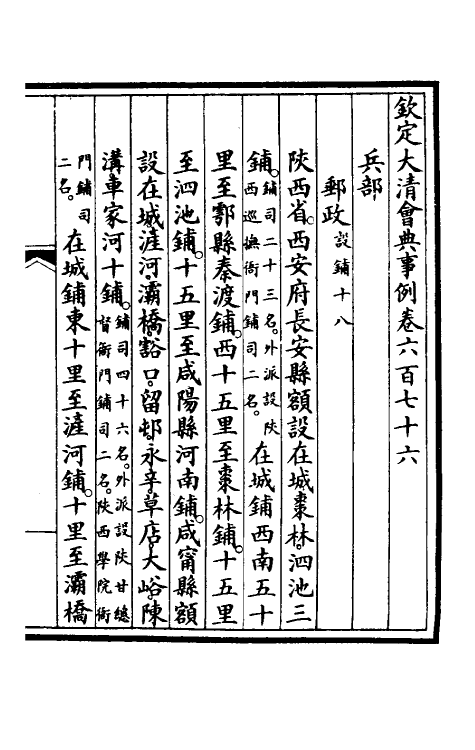 欽定大清會典事例卷六百七十六
兵部
郵政設鋪十八
陝西省。西安府長安縣額設在城、棗林、泗池三
鋪。鋪司二十三名。外派設陝西巡撫衙門鋪司二名。在城鋪西南五十
里至鄠縣秦渡鋪。西十五里至棗林鋪。十五里
至泗池鋪。十五里至咸陽縣河南鋪。咸甯縣額
設在城、滻河、灞橋、豁口、留邨、永辛、草店、大峪、陳
溝、車家河十鋪。鋪司四十六名。外派設陝甘總督衙門鋪司二名。陝西學院衙
門鋪司二名。在城鋪東十里至滻河鋪。十里至灞橋